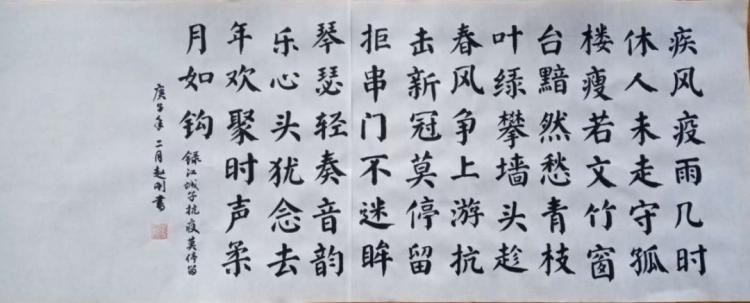 疾风疫雨几时
休人未走守孤
楼瘦若文竹窗
台黯然愁青枝
叶绿攀墙头趁
春风争上游抗
击新冠莫停留
拒串门不迷眸
琴瑟轻奏音韵
乐心头犹念去
年欢聚时声柔
月如钩
録江城子抗疫莫停留
庚子年二月赵刚書